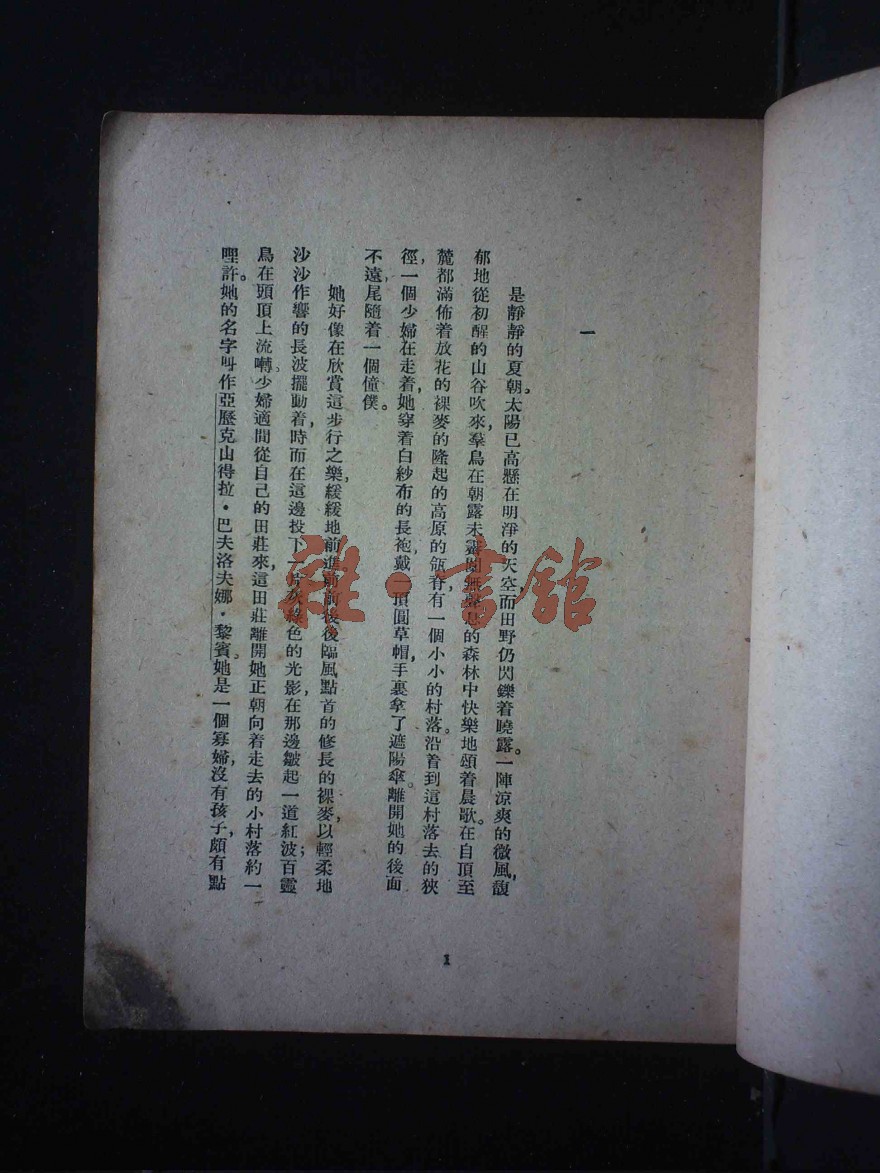 一
是靜靜的夏朝。太陽已高懸在明淨的天空而田野仍閃鑠着曉露。一陣涼爽的微風，馥
郁地從初醒的山谷吹來，羣鳥在朝露未霽闃無聲息的森林中快樂地頌着晨歌。在自頂至
麓都滿佈着放花的裸麥的隆起的高原的瓴脊，有一個小小的村落。沿着到這村落去的狹
徑，一個少婦在走着，她穿着白紗布的長袍，戴一頂圓草帽，手裏拿了遮陽傘。離開她的後面
不遠，尾隨着一個僮僕。
她好像在欣賞這步行之樂，緩緩地前進。前前後後臨風點首的修長的裸麥，以輕柔地
沙沙作響的長波擺動着，時而在這邊投下一片灰綠色的光影，在那邊皺起一道紅波；百靈
鳥在頭頂上流囀。少婦適間從自己的田莊來，這田莊離開她正朝向着走去的小村落約一
哩許。她的名字叫作亞歷克山得拉·巴夫洛夫娜·黎賓。她是一個寡婦，沒有孩子，頗有點
1
雜·書館